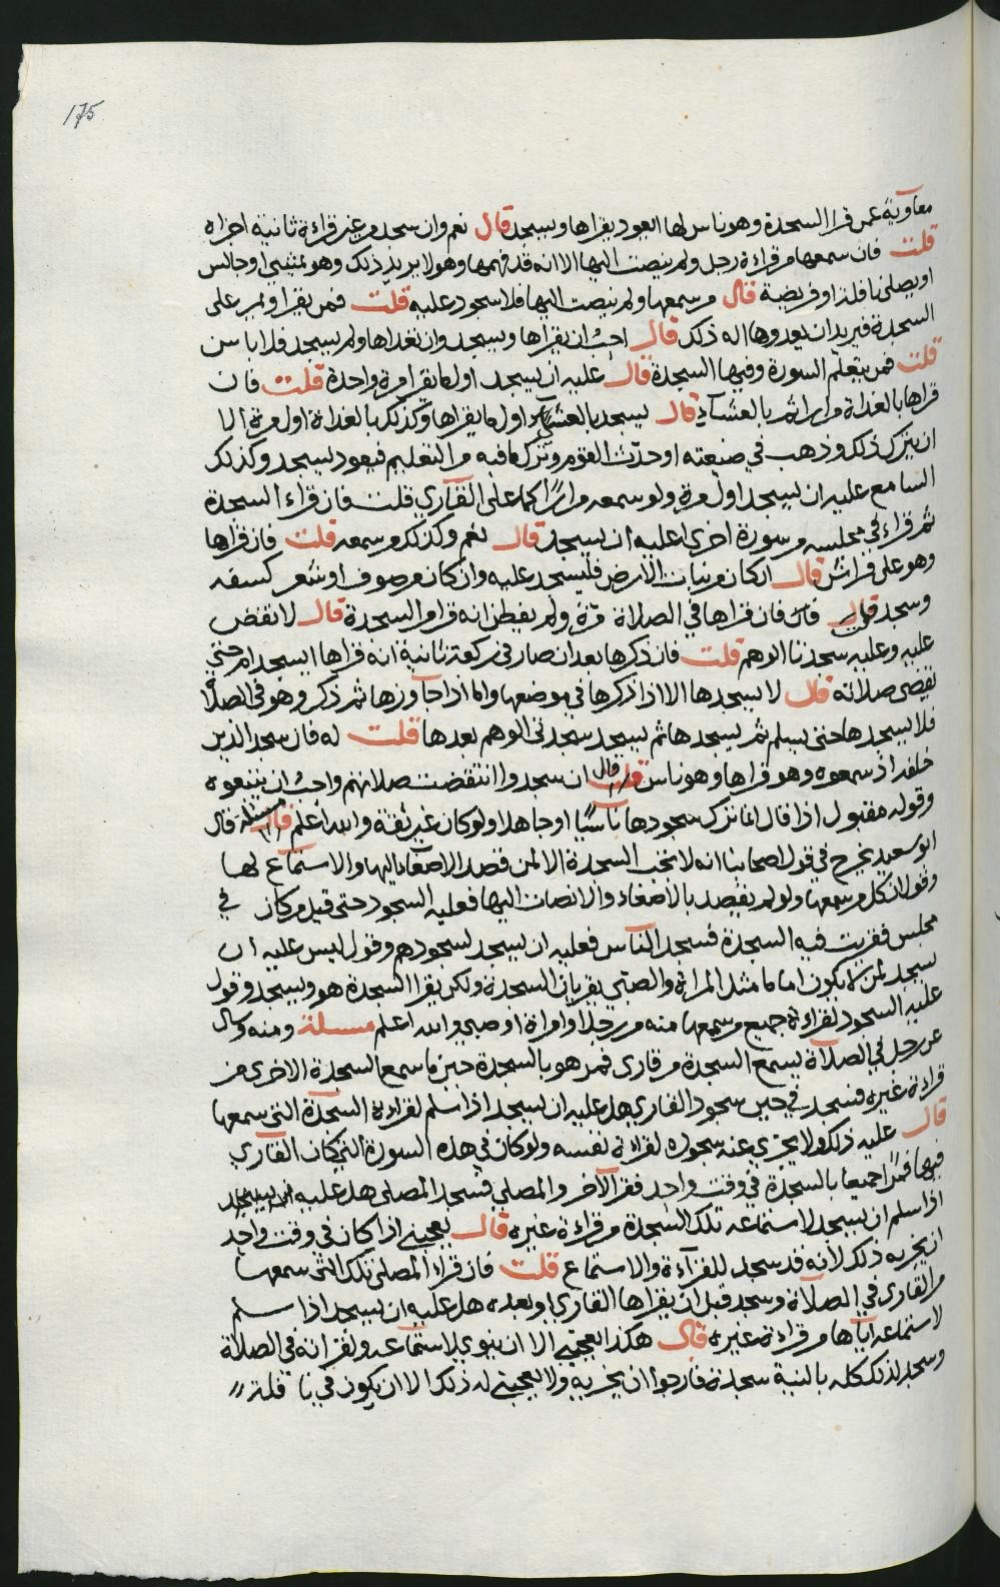 175
معاوية عمن قرا السجدة وهو ناس لها ايعود يقراها ويسجد قال نعم وان سجد من غير قراءة ثانية اجزاه
قلت فان سمعها من قراءة رجل ولم ينصت اليها الا انه قد فهمها وهو لا يريد ذلك وهو يمشي او جالس
او يصلي نافلة او فريضة قال من سمعها ولم ينصت اليها فلا سجود عليه قلت فمن يقرا ولم يمر على
السجدة فيريد ان يعدوها اله ذلك قال احب ان يقراها ويسجد وان تعداها ولم يسجد فلا باس
قلت فمن يتعلم السورة وفيها السجدة قال عليه ان يسجد اول ما يقرا مرة واحدة قلت فان
قراها بالغداة مرارا ثم بالعشاء قال يسجد بالعشي اول ما يقراها وكذلك بالغداة اول مرة الا
ان يترك ذلك وذهب في صنعته او حدث القوم وترك ما فيه من التعليم فيعود يسجد وكذلك
السامع عليه ان يسجد اول مرة ولو سمعه مرارا كما على القاري قلت فان قراء السجدة
ثم قراء في مجلسه من سورة اخرى اعليه ان يسجد قال نعم وكذلك من سمعه قلت فان قراها
وهو على فراش قال ان كان من نبات الارض فليسجد عليه وان كان من صوف او شعر كسفه
وسجد قال فان قراها في الصلاة مرة ولم يفطن انه قرا من السجدة قال لا نقض
عليه وعليه سجدتا الوهم قلت فان ذكرها بعد ان صار في ركعة ثانية انه قراها ايسجد ام حتى
تقضى صلاته قال لا يسجدها الا اذا ذكرها في موضعها واما اذا جاوزها ثم ذكر وهو في الصلاة
فلا يسجدها حتى يسلم ثم يسجدها ثم يسجد سجدتي الوهم بعدها قلت له فان سجد الذين
خلفه اذ سمعوه وهو قراها وهو ناس قال ان سجدوا انتقضت صلاتهم واحب ان يتبعوه
وقوله مقبول اذا قال انما ترك سجودها ناسيا او جاهلا ولو كان غير ثقة والله اعلم مسئلة قال
ابو سعيد يخرج في قول اصحابنا انه لا تجب السجدة الا لمن قصد الاصغاء اليها والاستماع لها
وقول ان كل من سمعها ولو لم يقصد بالاصغاء والانصات اليها فعليه السجود حتى قيل من كان في
مجلس فقريت فيه السجدة فسجد الناس فعليه ان يسجد لسجودهم وقول ليس عليه ان
يسجد لمن لا يكون اماما مثل المراة والصبي يقريان السجدة ولكن يقرا السجدة هو ويسجد وقول
عليه السجود لقراءة جميع من سمعها منه من رجل او امراة او صبي والله اعلم مسئلة ومنه وقال
عن رجل في الصلاة يسمع السجدة من قارى فمر هو بالسجدة حين ما سمع السجدة الاخرى من
قراءة غيره فسجد في حين سجود القاري هل عليه ان يسجد اذا سلم لقراءة السجدة التي سمعها
قال عليه ذلك ولا يجزي عنه سجوده لقراءة نفسه ولو كان في هذه السورة التي كان القاري
فيها فمرا جميعا بالسجدة في وقت واحد فقرا الآخر والمصلي فسجد المصلي هل عليه ان يسجد
اذا سلم ان يسجد لاستماعه تلك السجدة من قراءة غيره قال يعجبني اذا كان في وقت واحد
ان يجزيه ذلك لانه قد سجد للقراءة والاستماع قلت فان قراء المصلي تلك التي سمعها
من القاري في الصلاة وسجد قبل ان يقراها القاري او بعده هل عليه ان يسجد اذا سلم
لاستماعه اياها من قراءة غيره قال هكذا يعجبني الا ان ينوي لاستماعه ولقراته في الصلاة
وسجد لذلك كله بالنية سجدة فارجوا ان يجزيه ولا يعجبني له ذلك الا ان يكون في نافلة